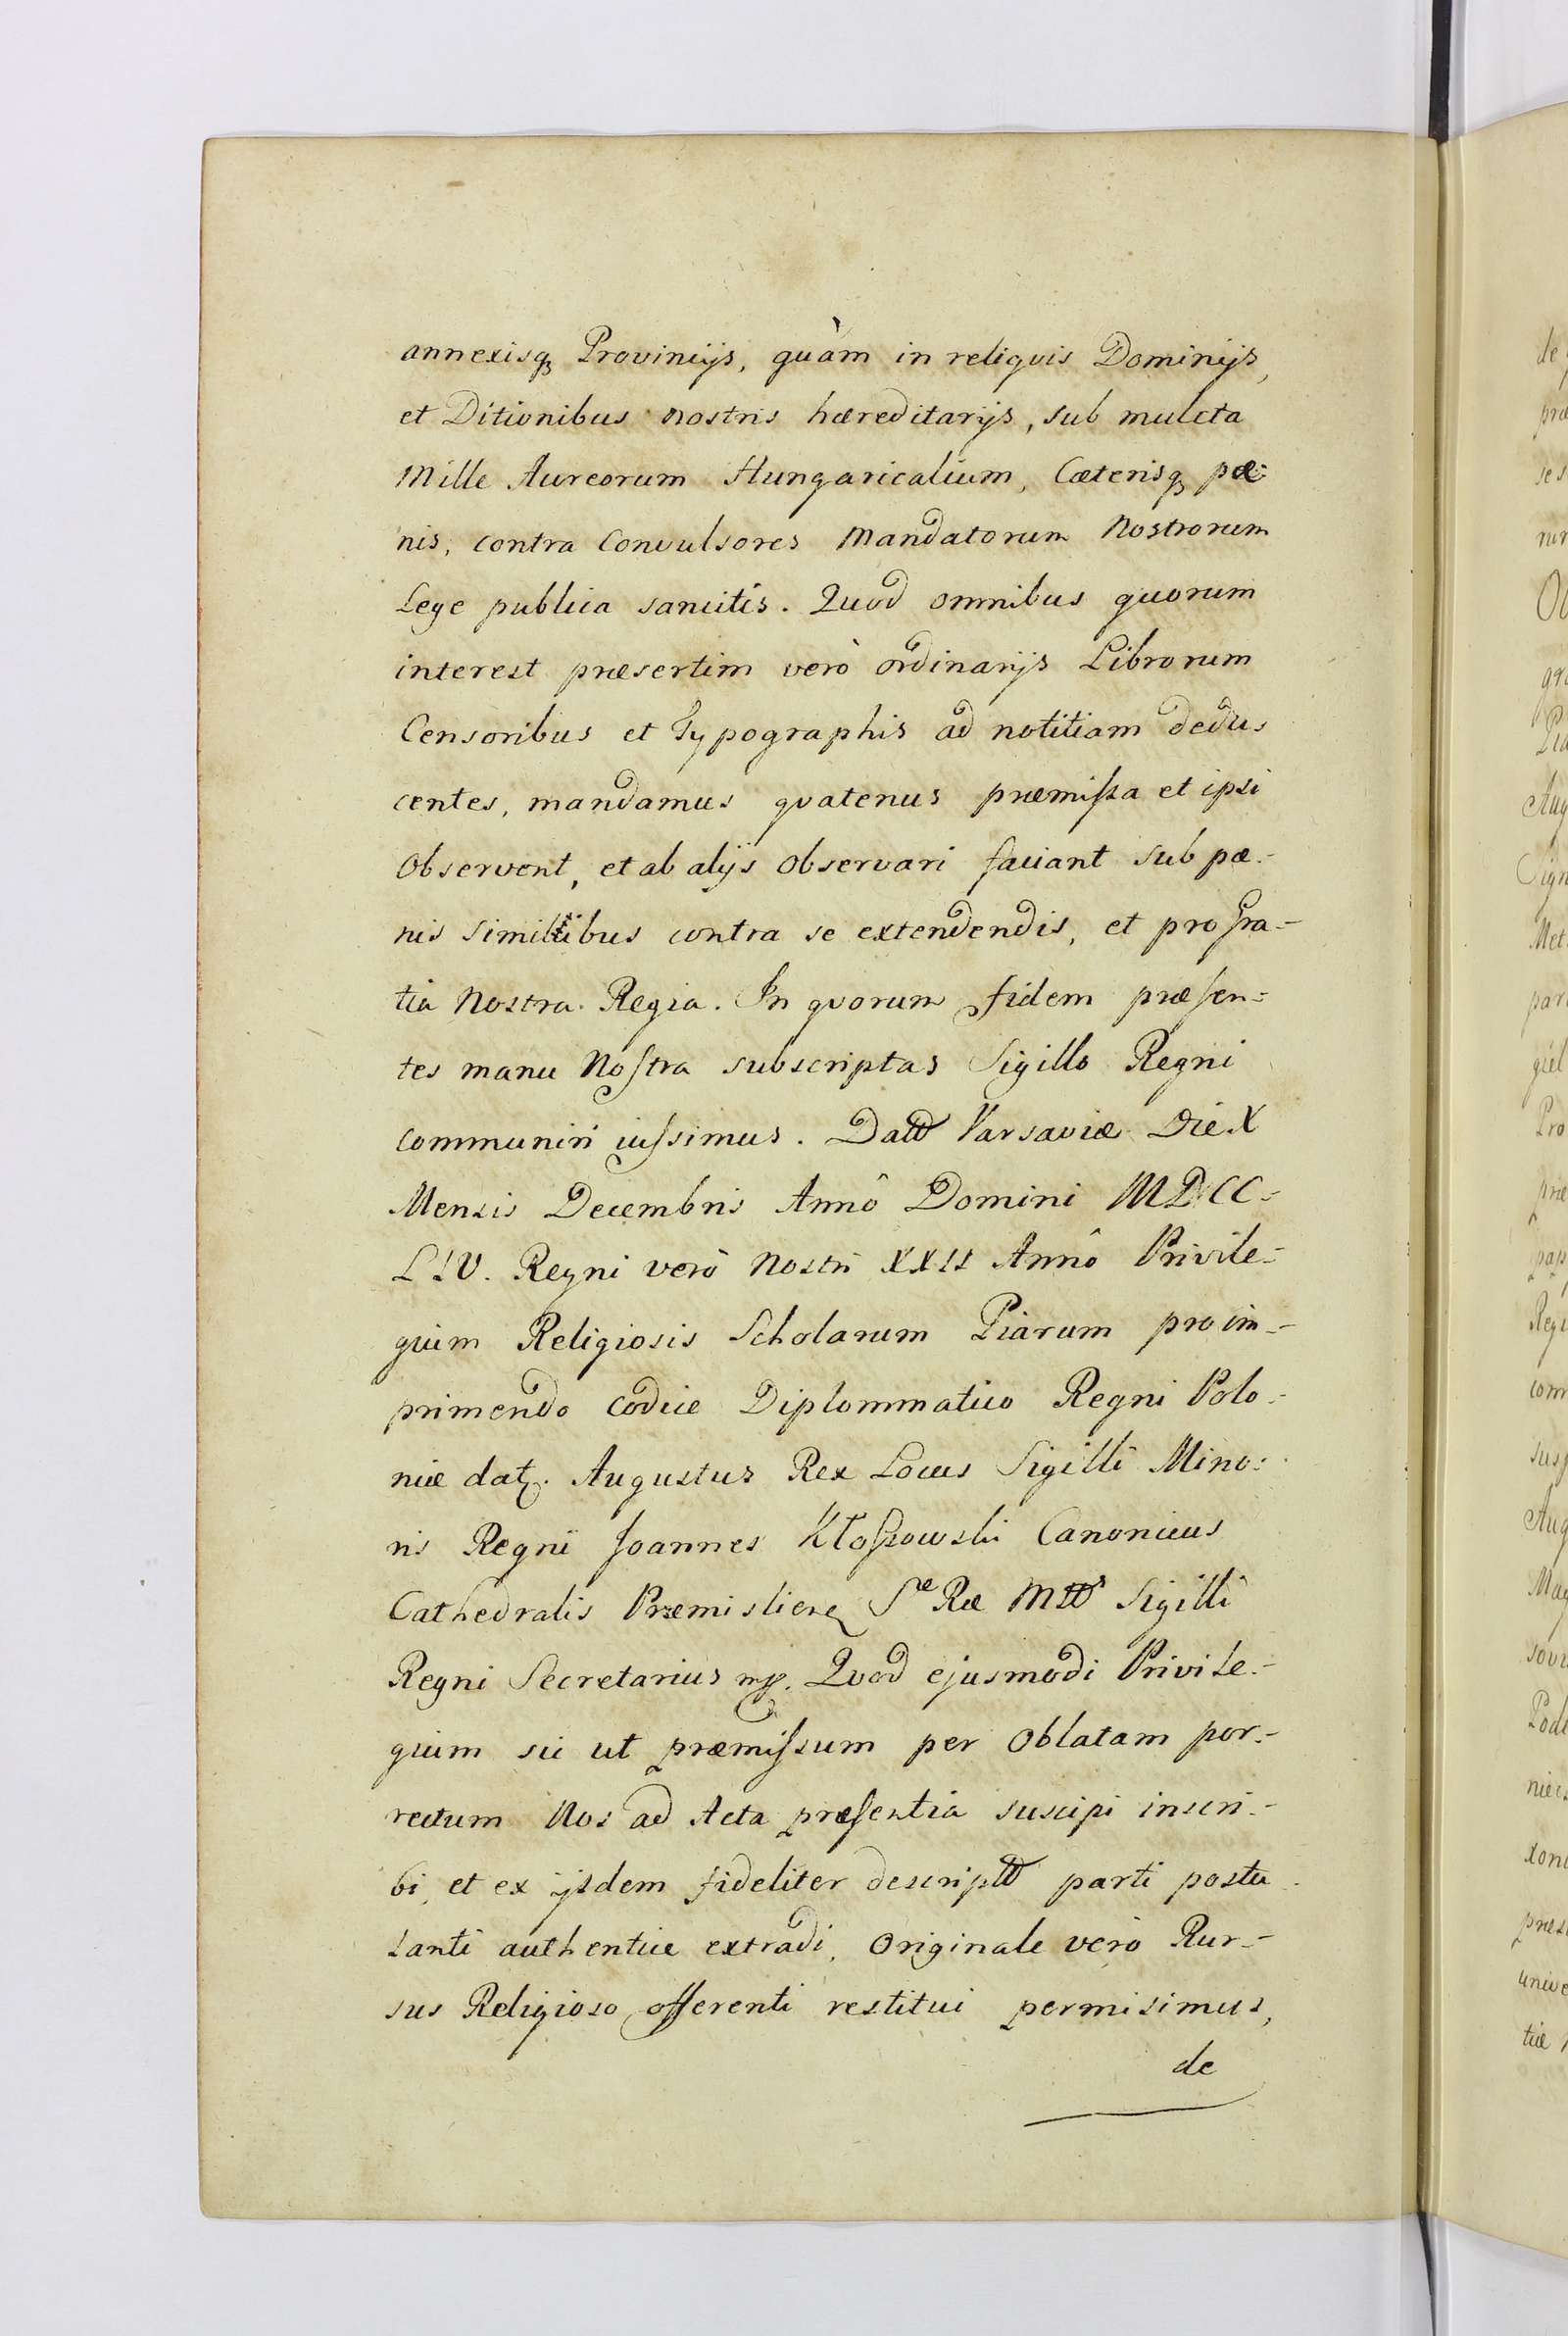 annexisq Provincijs, quàm in reliqvis Dominijs,
et Ditionibus nostris hæreditarijs, sub mulcta
Mille Aureorum Hungaricalium, Cæterisq pæ-
nis, contra Convulsores Mandatorum Nostrorum
Lege publica sancitis. Quod omnibus quorum
interest præsertim verò ordinarijs Librorum
Censoribus et Typographis ad notitiam dedu-
centes, mandamus qvatenus præmissa et ipsi
Observent, et ab alijs Observari faciant sub pæ-
nis similibus contra se extendendis, et pro Gra-
tia Nostra Regia. In qvorum fidem præsen-
tes manu Nostra subscriptas Sigillo Regni
communiri iussimus. Datt Varsaviæ Die X
Mensis Decembris Annô Domini MDCC-
LIV. Regni verò Nostri XXII Annô Privile-
gium Religiosis Scholarum Piarum pro im-
primendo Codice Diplommatico Regni Polo-
niæ dat. Augustus Rex Locus Sigilli Mino-
ris Regni Joannes Kłossowski Canonicus
Cathedralis Præmislien Sæ Ræ Mtts Sigilli
Regni Secretarius mp. Qvod ejusmodi Privile-
gium sic ut præmissum per Oblatam por-
rectum Nos ad Acta præsentia suscipi inscri-
bi, et ex ijsdem fideliter descriptt parti postu-
lanti authentice extradi, Originale verò Rur-
sus Religioso offerenti restitui permisimus,
de